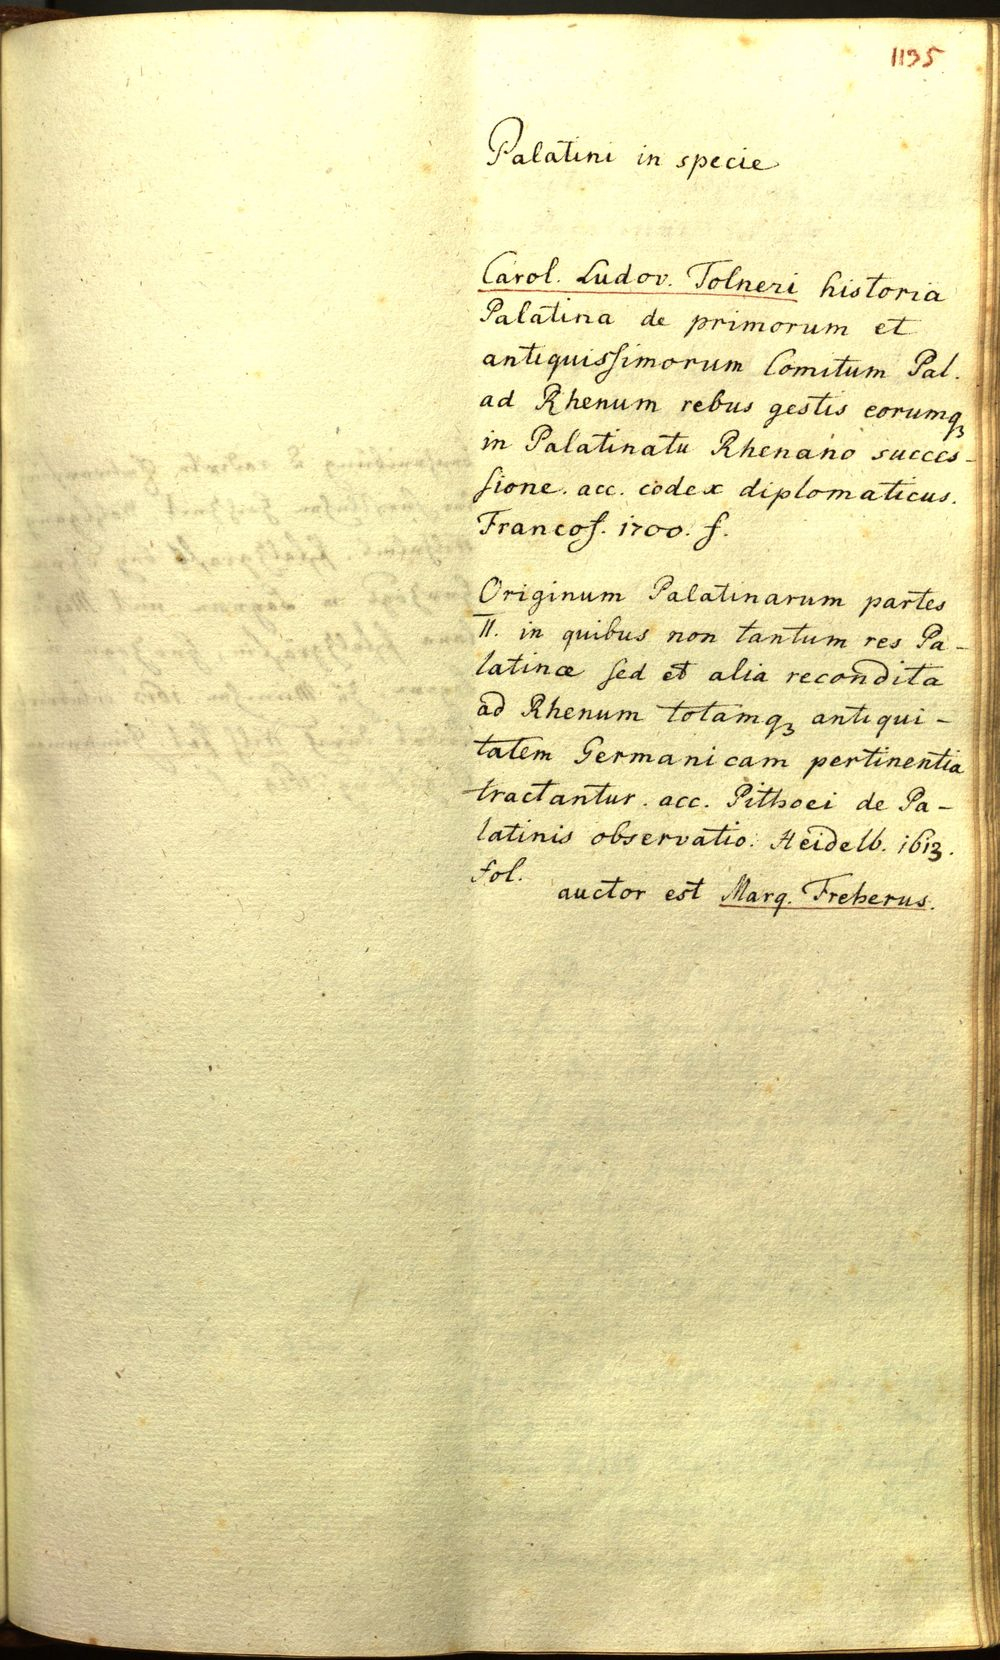 1195
Palatini in specie
Carol. Ludov. Tolneri historia
Palatina de primorum et
antiquisſimorum Comitum Pal.
ad Rhenum rebus gestis eorumqꝫ
in Palatinatu Rhenano succes-
ſione. acc. codex diplomaticus.
Francof. 1700. f.
Originum Palatinarum partes
II. in quibus non tantum res Pa-
latinæ ſed et alia recondita
ad Rhenum totamqꝫ antiqui-
tatem Germanicam pertinentia
tractantur. acc. Pithoei de Pa-
latinis observatio: Heidelb. 1613.
fol.
auctor est Marq. Freherus.